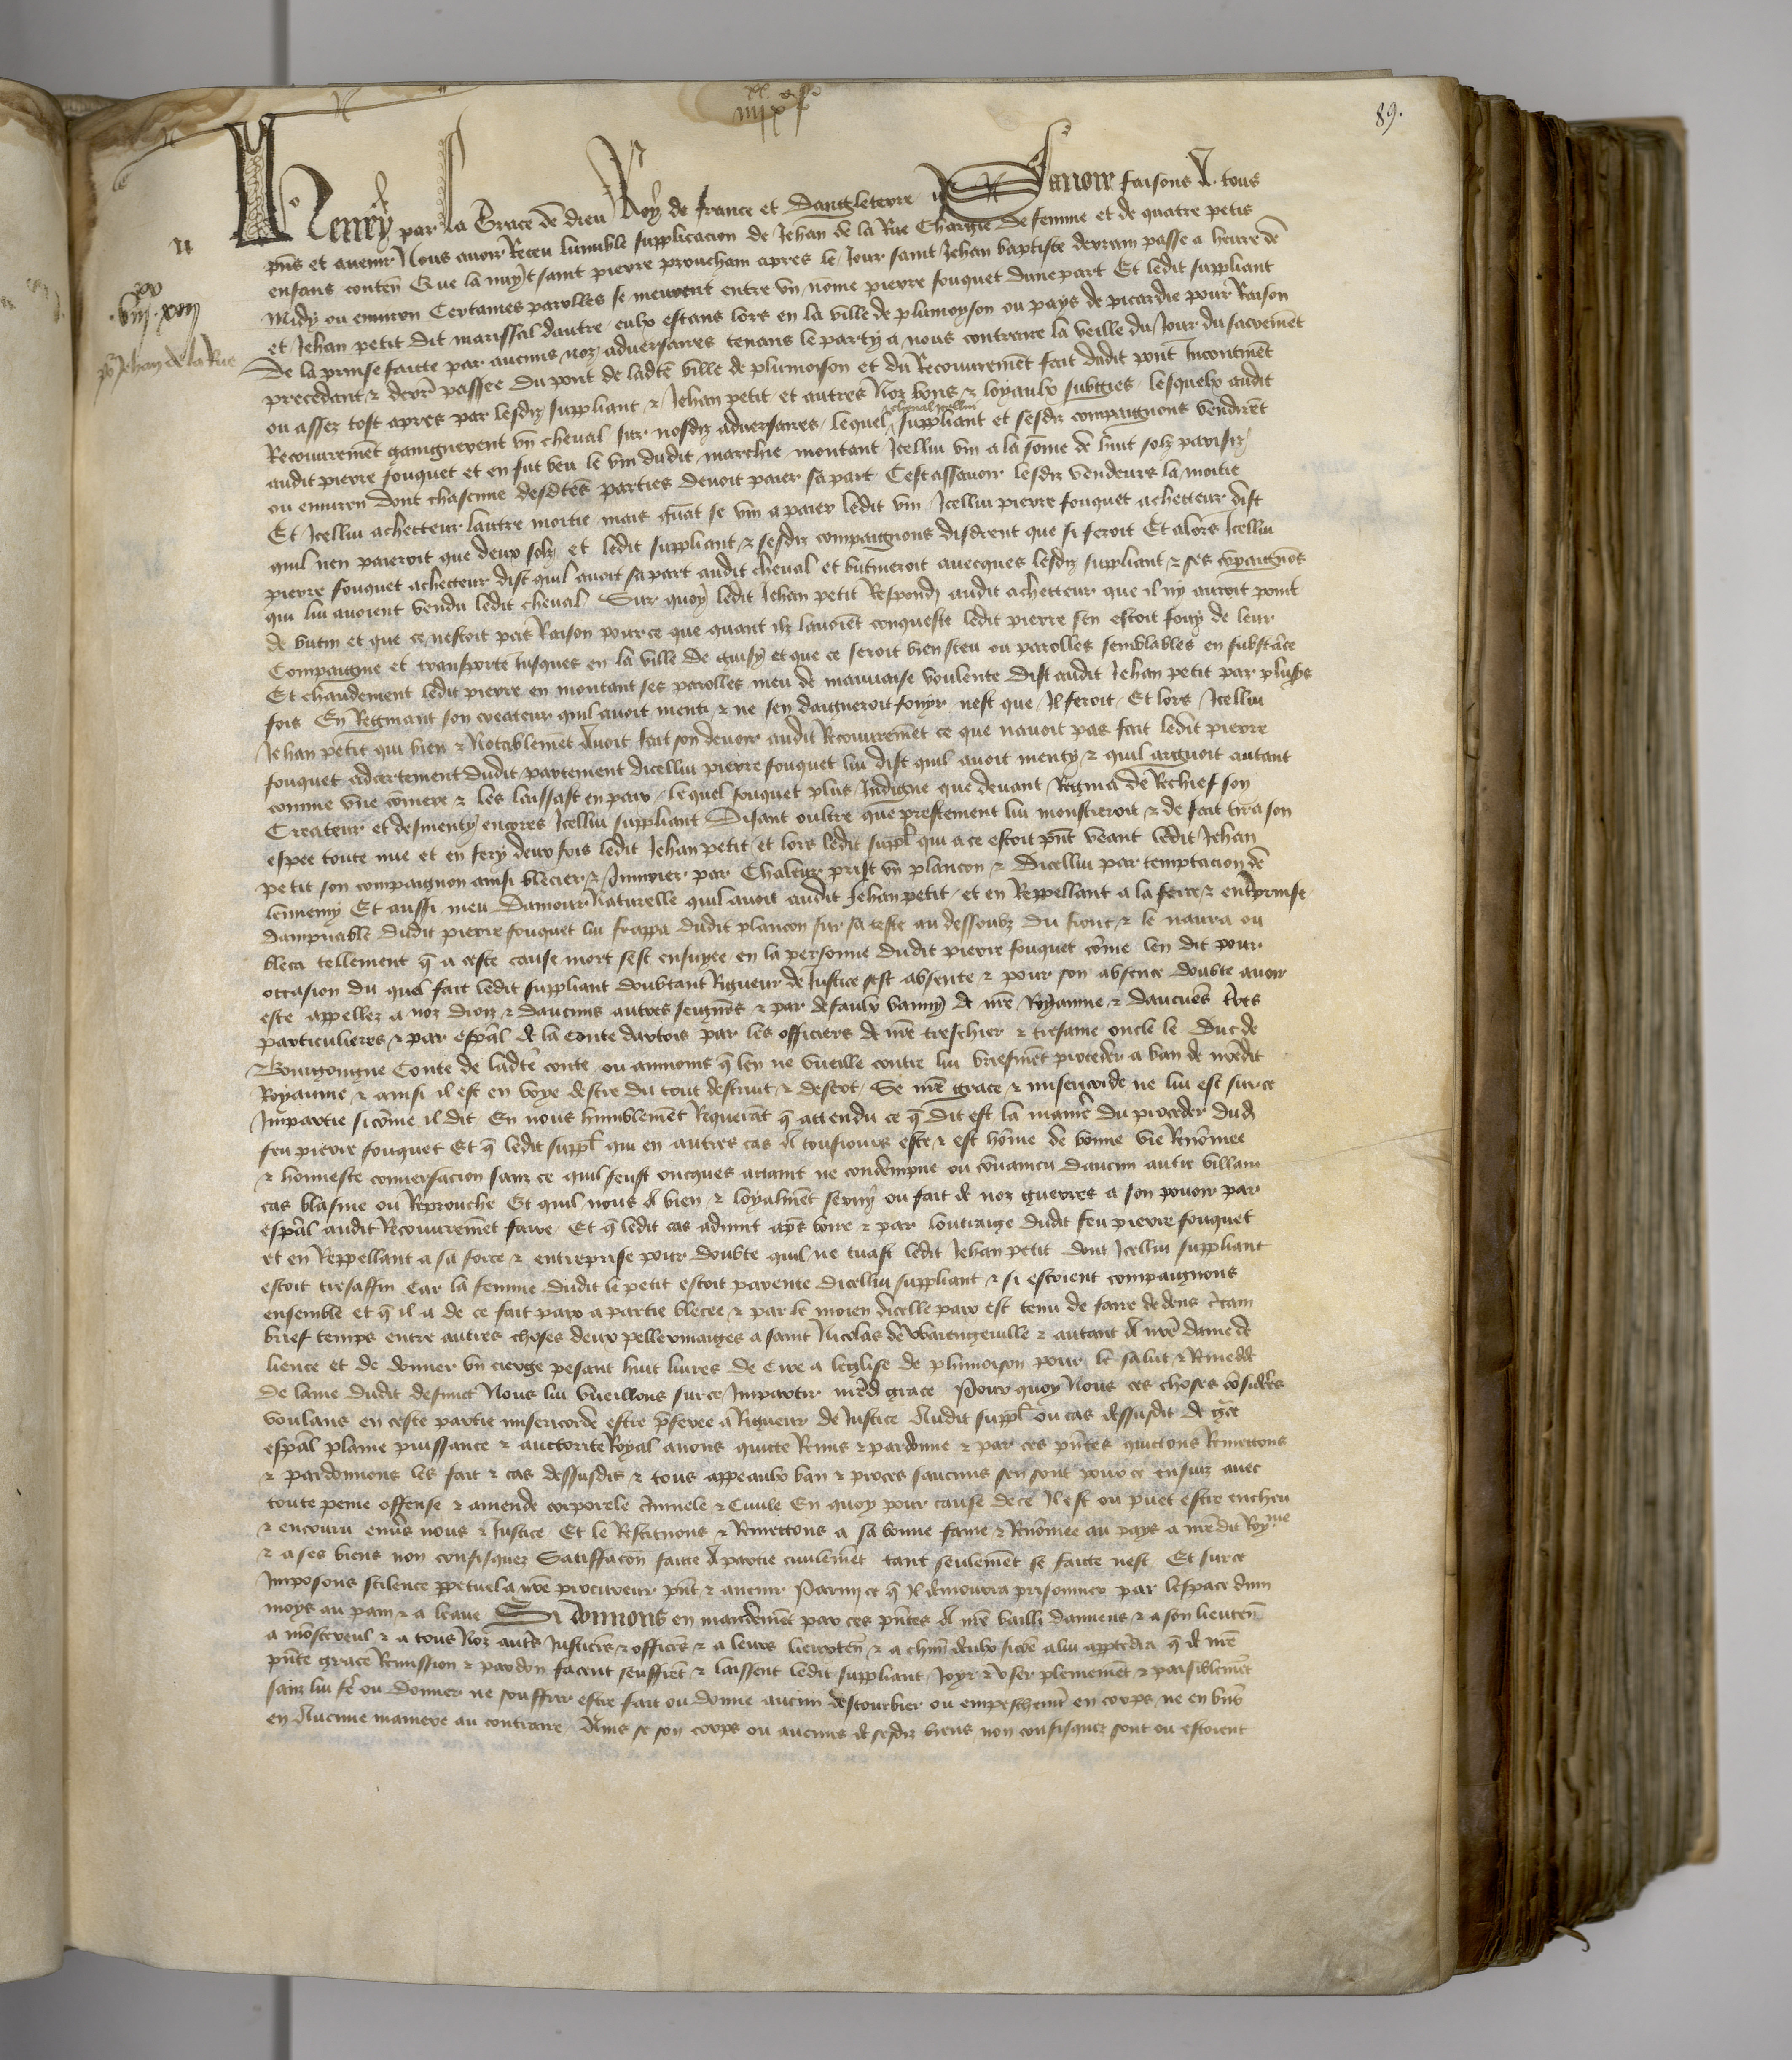 89.
Henry par la Grace de dieu Roy de france et Dangleterre Savoir faisons A tous
pñs et avenir Nous avoir Receu lumble supplicacion de Jehan de la Rue Chargie de femme et de quatre petis
enfans conteñ Que la nuyt saint pierre prouchain apres le Jour saint Jehan baptiste derrain passe a heure de
Midy ou environ Certaines parolles se meurent entre vn nõme pierre fouquet dune part Et ledit suppliant
et Jehan petit dit marissal dautre eulx estans lors en la ville de plumoyson ou pays de picardie pour Raison
De la prinse faitte par aucuns noz adversaires tenans le party a nous contraire la veille du Jour du sacremẽt
precedant & derr̃ passee Du pont de ladte ville de plumoison et du Recouvremẽt fait dudit pont Incontinẽt
ou assez tost apres par lesdiz suppliant & Jehan petit et autres Noz bons & loyaulx subgies lesquelx audit
Recouvremẽt gaingnerent vn cheval sur nosdiz adversaires lequel cheval icellui suppliant et sesdiz compaignons vendirẽt
audit pierre fouquet et en fut beu le vin dudit marchie montant Icellui vin a la sõme de huit solz parisiz
ou environ dont chascune desdtes parties devoit paier sa part Cest assavoir lesdiz vendeurs la moitie
Et Icellui achetteur lautre moitie mais quãt se vin a paier ledit vin Icellui pierre fouquet achetteur dist
quil nen paieroit que deux solz et ledit suppliant & sesdiz compaignons disdrent que si feroit Et alors Icellui
pierre fouquet achetteur dist quil avoit sa part audit cheval et butineroit avecques lesdiz suppliant & ses cõpaignõs
qui lui avoient vendu ledit cheval Sur quoy ledit Jehan petit Respondi audit achetteur que il ny auroit point
de butin et que ce nestoit pas Raison pource que quant ilz lavoiẽt conqueste ledit pierre sen estoit fouy de leur
Compaignie et transporte Jusques en la ville de et que ce seroit bien sceu ou parolles semblables en substãce
Et chaudement ledit pierre en montant ses parolles meu de mauvaise voulente dist audit Jehan petit par plusrs
fois En Regniant son createur quil avoit menti & ne sen daigneroit fouyr nest que Il feroit Et lors Icellui
Jehan petit qui bien & Notablemẽt Avoit fait son devoir audit Recouvremẽt ce que navoit pas fait ledit pierre
fouquet dudit partement dicellui pierre fouquet lui dist quil avoit menty & quil arguoit autant
comme vne cõmere & les laissast en paix lequel fouquet plus Indigne que devant Regnia de Rechief son
Createur et desmenty encores Icellui suppliant Disant oultre que prestement lui monstreroit & de fait tira son
espee toute nue et en fery deux fois ledit Jehan petit et lors ledit suppl̃ qui a ce estoit pñt veant ledit Jehan
petit son compaignon ainsi blecier & par Chaleur prist vn plancon & Dicellui par temptacion de
lennemy Et aussi meu Damour Naturelle quil avoit audit Jehan petit et en Reppellant a la force & entreprinse
dampnable dudit pierre fouquet lui frappa dudit plancon sur sa teste au dessoubz du front & le navra ou
bleca tellement q̃ a ceste cause mort sest ensuyee en la personne dudit pierre fouquet cõme len dit pour
occasion du quel fait ledit suppliant doubtant Rigueur de Justice sest absente & pour son absence doubte avoir
este appellez a noz droiz & daucuns autres seigñs & par defaulx banny de nr̃e Royaume & daucuẽs tr̃es
particulieres & par esp̃al de la conte dartois par les officiers de nr̃e treschier & tresame oncle le Duc de
Bourgoingne Conte de ladte conte ou aumoins q̃ len ne vueille contre lui briefmẽt proceder a ban de nr̃edit
Royaume & ainsi il est en voye destre du tout destruit & desert Se nr̃e grace & misericorde ne lui est sur ce
Impartie si cõme il dit En nous humblemẽt Requerãt q̃ attendu ce q̃ dit est la maniẽ du proceder dud
feu pierre fouquet Et q̃ ledit suppl̃ qui en autres cas A tousiours este & est hõme de bonne vie Renõmee
& honneste conversacion sanz ce quil feust oncques attaint ne condempne ou cõvaincu daucun autre villain
cas blasme ou Reprouche Et quil nous A bien & loyalmẽt servy ou fait de noz guerres a son povoir par
esp̃al audit Recouvremẽt faire Et q̃ ledit cas advint ap̃s boire & par loutraige dudit feu pierre fouquet
et en Reppellant a sa force & entreprise pour doubte quil ne tuast ledit Jehan petit dont Icellui suppliant
estoit tresaffin car la femme dudit le petit estoit parente dicellui suppliant & si estoient compaignons
ensemble et q̃ il a de ce fait paix a partie blecee & par le moien dicelle paix est tenu de faire dedens cr̃tain
brief temps entre autres choses deux pellerinaiges a saint Nicolas de Warengeville & autant A nr̃e dame de
lience et de donner vn cierge pesant huit livres de Cire a leglise de plumoison pour le salut & Remede
de lame dudit defunct Nous lui vueillons sur ce Impartir nr̃ed grace Pour quoy Nous ces choses cõsiderẽs
voulans en ceste partie misericorde estre p̃feree a Rigueur de Justice Audit suppl̃ ou cas dessusdit de gr̃ce
esp̃al plaine puissance & auctorite Royal avons quitte Remis & pardonne & par ces pñtes quictons Remettons
& pardonnons les fait & cas dessusdis & tous appeaulx ban & proces saucuns sen sont pour ce ensuiz avec
toute peine offense & amende corporele Criminele & Civile En quoy pour cause de ce Il est ou puet estre encheu
& encouru env̾s nous & Justice Et le Restituons & Remettons a sa bonne fame & Renõmee au pays a nr̃edit Royme
& a ses biens non confisquez Satisfacoñ faitte A partie civilemẽt tant seulemẽt se faitte nest Et sur ce
Imposons scilence ppetuel a nr̃e procureur pñt & avenir Parmi ce q̃ Il demourra prisonnier par lespace dun
moys au pain & a leaue Si donnons en mandemẽt par ces pñtes A nr̃e bailli damiens & a son lieuteñ
a mostereul & a tous Noz autr̃s Justiciers & officiers & a leurs lieuxteñ & a chũn deulx sicõe a lui appt̃edra q̃ de nr̃e
pñte grace Remission & pardon facent seuffrẽt & laissent ledit suppliant Joyr & vser plenemẽt & paisiblemẽt
sanz lui fr̃e ou donner ne souffrir estre fait ou donne aucun destourbier ou empeschemt en corps ne en biẽs
en Aucune maniere au contraire Ains se son corps ou aucuns de sesdiz biens non confisquez sont ou estoient
po Jehan de la Rue